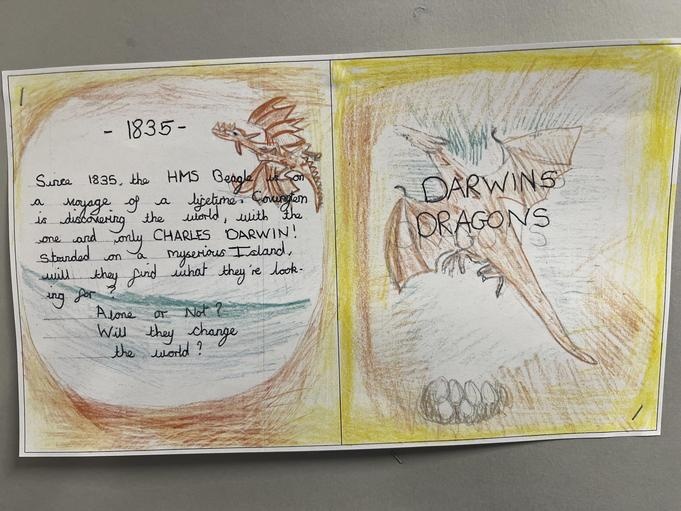 - 1835 -
Since 1835, the HMS Beagle is on
a voyage of a lifetime. Covingtem
is discovering the world, with the
one and only CHARLES DARWIN!
Stranded on a myserious Island,
will they find what they're look-
ing for?
Alone or Not?
Will they change
the world?
DARWINS
DRAGONS